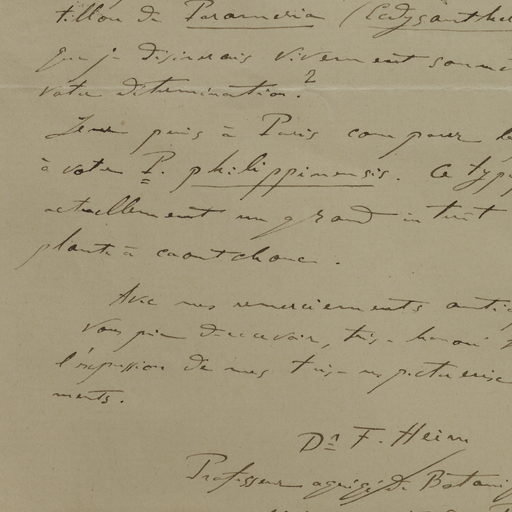 tillon de Parameria (Ecdysanthe
que je désirerais vivement soume
votre détermination.²
Je ne puis à Paris comparer le
à votre P. philippinensis. Ce typ
actuellement un grand intérêt
plante à caoutchouc.
Avec mes remerciements antic
vous prie de recevoir, très-honoré
l'expression de mes très-respectueuse
ments.
Dr F. Heim
Professeur agrégé de Botani